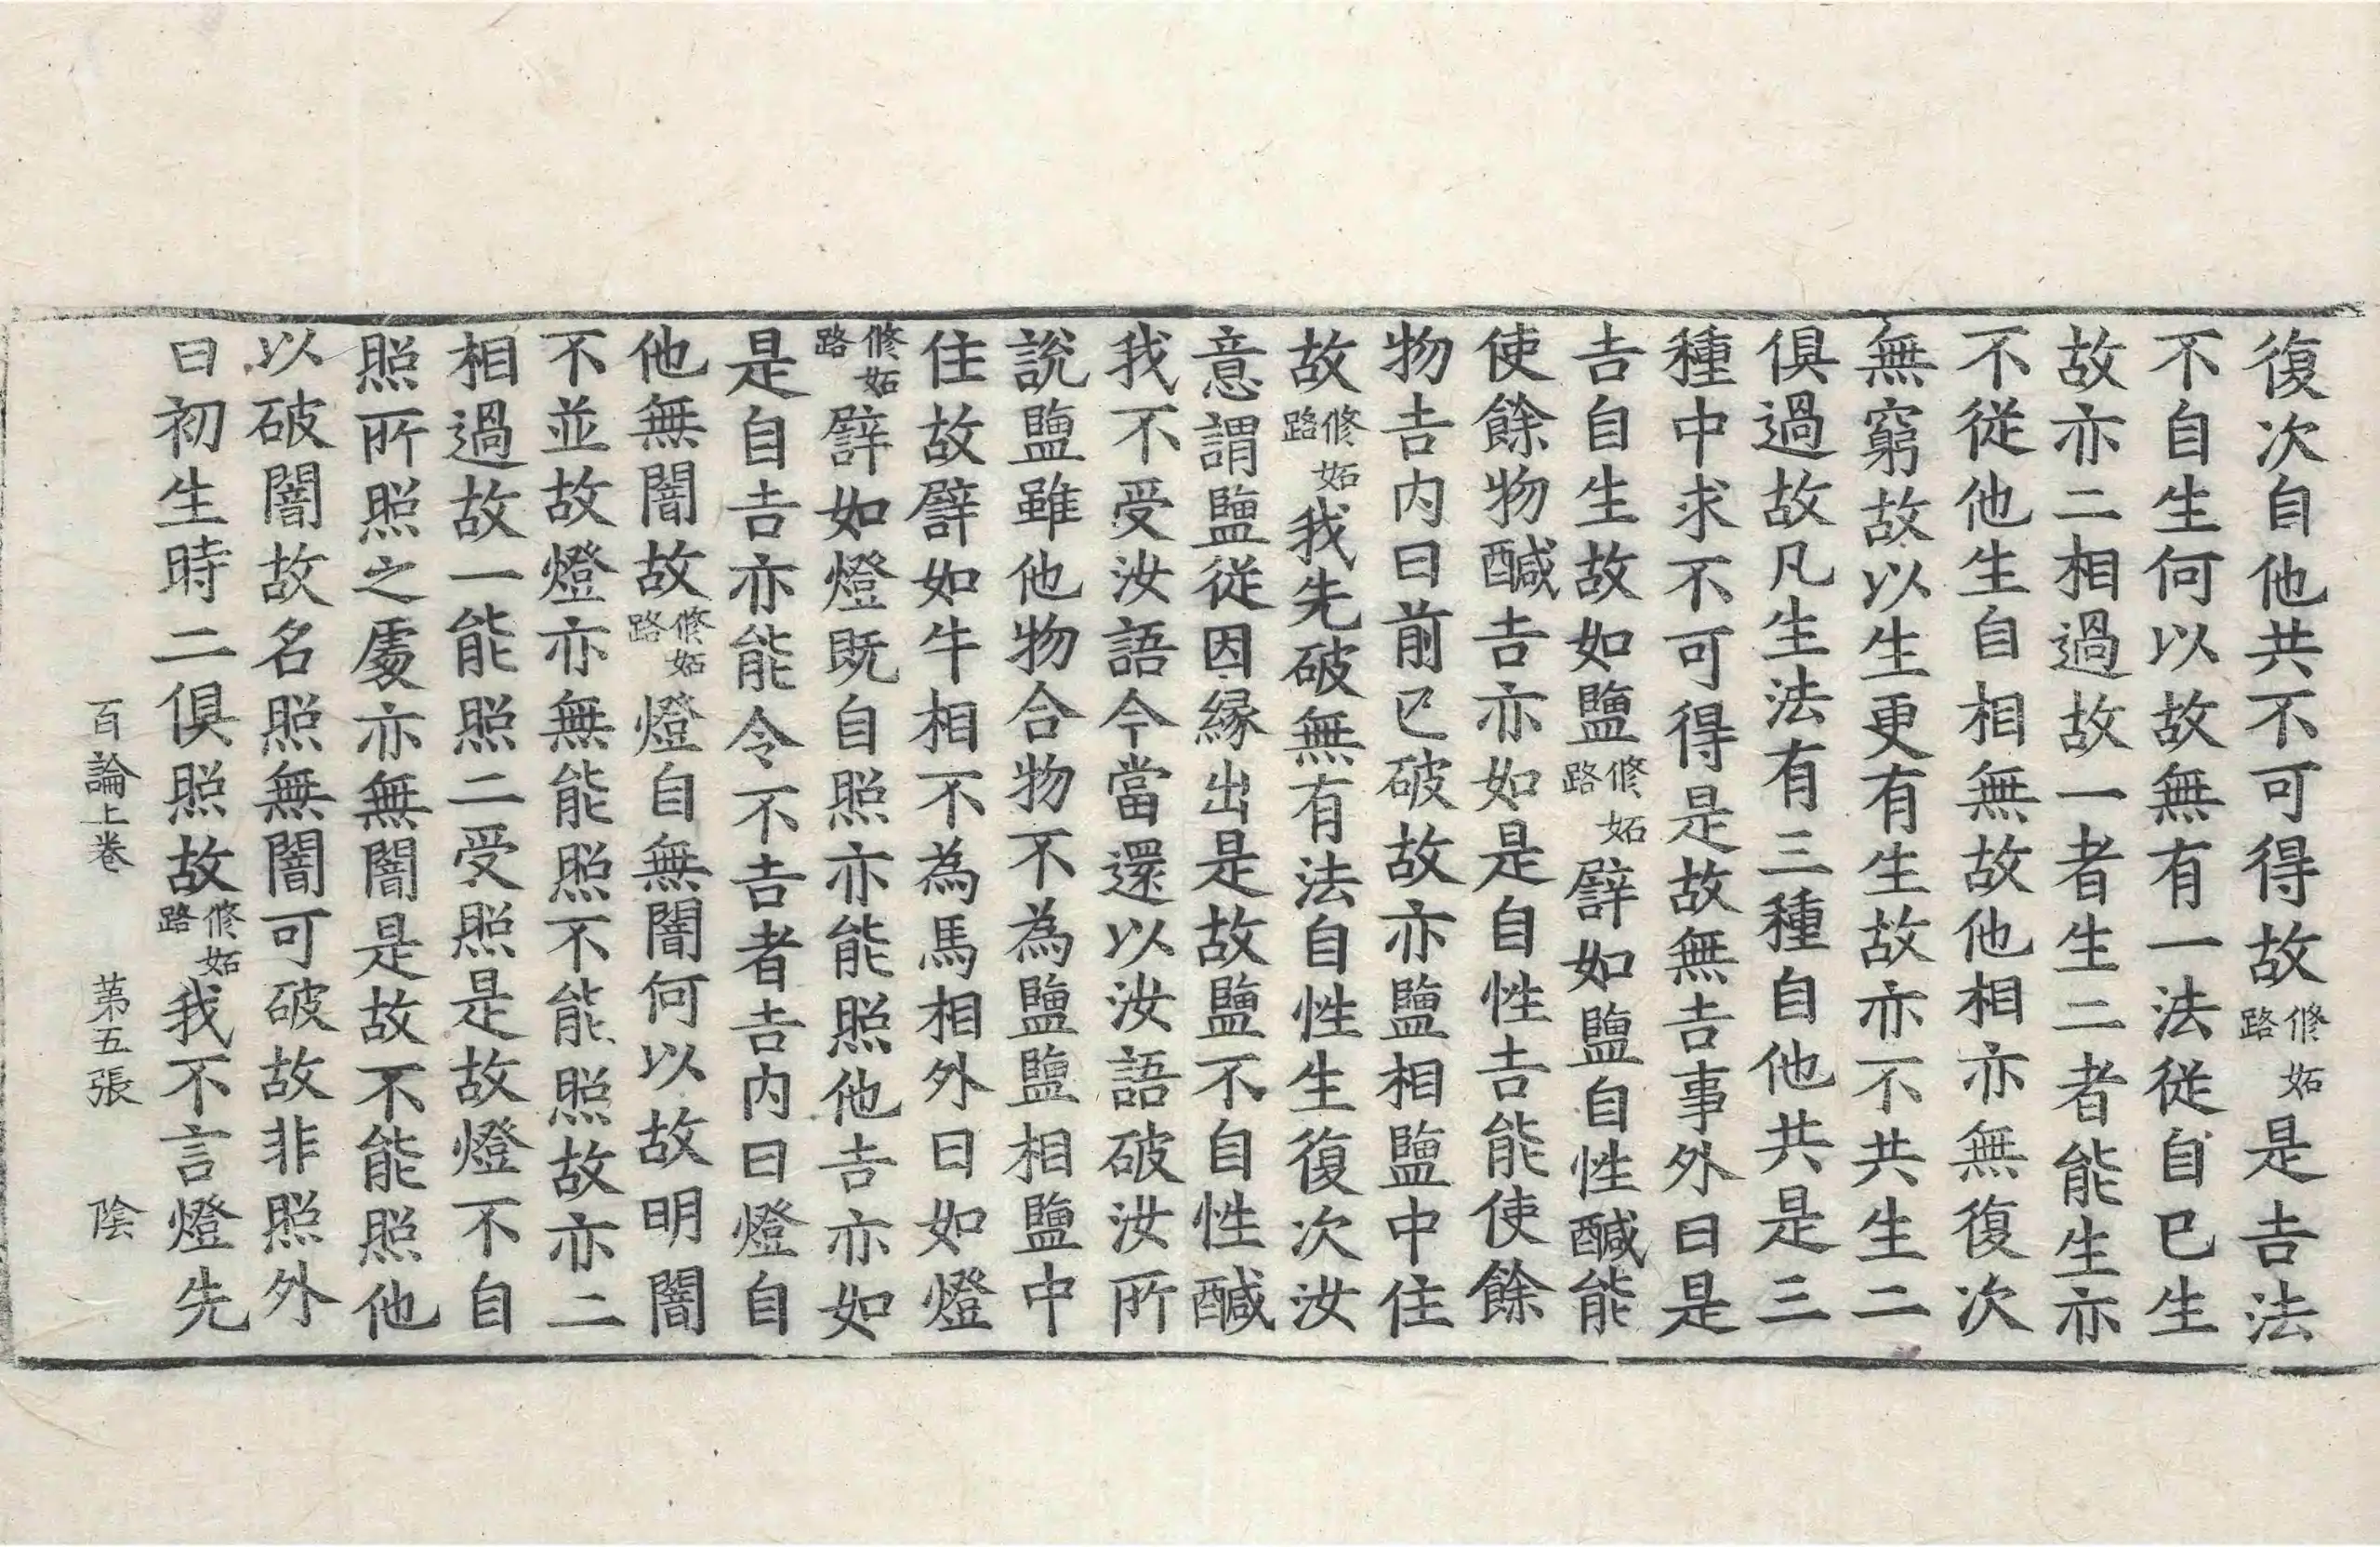 復次自他共不可得故修妬路是吉法
不自生何以故無有一法從自已生
故亦二相過故一者生二者能生亦
不從他生自相無故他相亦無復次
無窮故以生更有生故亦不共生二
俱過故凡生法有三種自他共是三
種中求不可得是故無吉事外曰是
吉自生故如鹽修妬路譬如鹽自性醎能
使餘物醎吉亦如是自性吉能使餘
物吉内曰前已破故亦鹽相鹽中住
故修妬路我先破無有法自性生復次汝
意謂鹽從因緣出是故鹽不自性醎
我不受汝語今當還以汝語破汝所
說鹽雖他物合物不為鹽鹽相鹽中
住故譬如牛相不為馬相外曰如燈
修妬路譬如燈既自照亦能照他吉亦如
是自吉亦能令不吉者吉内曰燈自
他無闇故修妬路燈自無闇何以故明闇
不並故燈亦無能照不能照故亦二
相過故一能照二受照是故燈不自
照所照之處亦無闇是故不能照他
以破闇故名照無闇可破故非照外
曰初生時二俱照故修妬路我不言燈先
百論上卷　第五張　陰